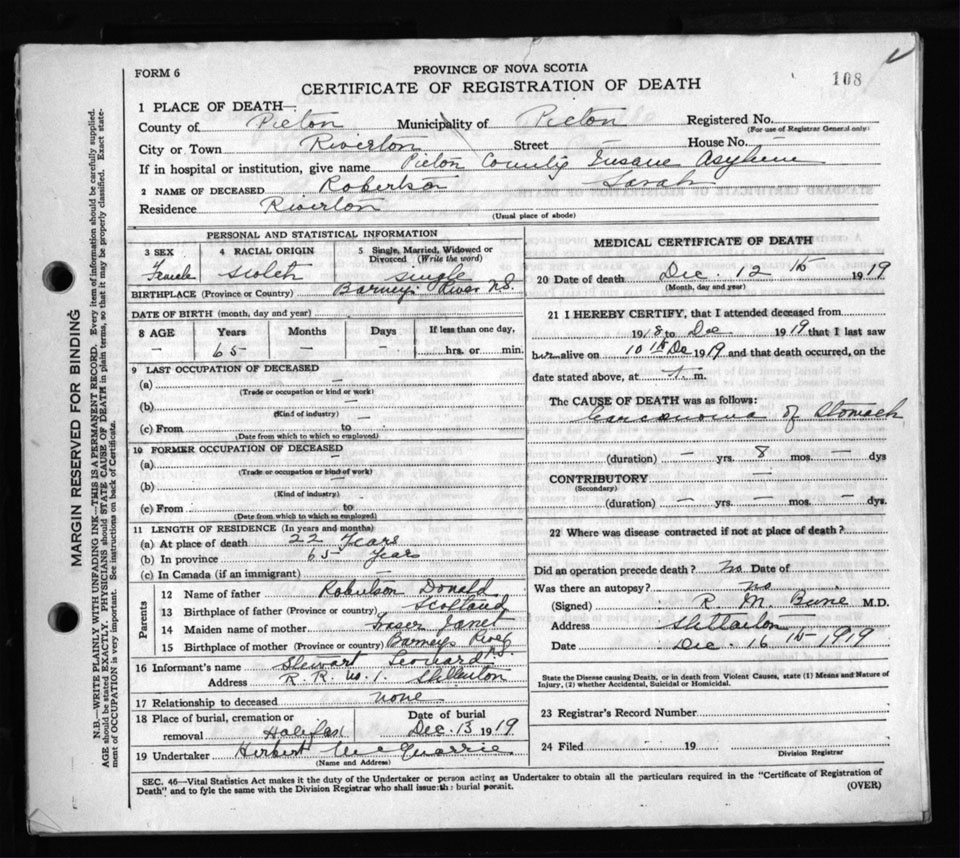 FORM 6
PROVINCE OF NOVA SCOTIA
108
CERTIFICATE OF REGISTRATION OF DEATH
1 PLACE OF DEATH—
County of Picton Municipality of Picton Registered No.
(For use of Registrar General only)
City or Town Riverton Street House No.
If in hospital or institution, give name Picton County Insane Asylum
2 NAME OF DECEASED Robertson Sarah
Residence Riverton
(Usual place of abode)
PERSONAL AND STATISTICAL INFORMATION
3 SEX 4 RACIAL ORIGIN 5 Single, Married, Widowed or Divorced (Write the word)
Female Scotch Single
BIRTHPLACE (Province or Country) Barneys River N.S.
DATE OF BIRTH (month, day and year)
8 AGE Years Months Days If less than one day,
— 65 — — hrs. or min.
9 LAST OCCUPATION OF DECEASED
(a) —
(Trade or occupation or kind of work)
(b)
(Kind of industry) —
(c) From to
(Date from which to which so employed)
10 FORMER OCCUPATION OF DECEASED
(a) —
(Trade or occupation or kind of work)
(b) —
(Kind of industry)
(c) From to
(Date from which to which so employed)
11 LENGTH OF RESIDENCE (In years and months)
(a) At place of death 22 Years
(b) In province 65 Years
(c) In Canada (if an immigrant) —
Parents
12 Name of father Robertson Donald
13 Birthplace of father (Province or country) Scotland
14 Maiden name of mother Fraser Janet
15 Birthplace of mother (Province or country) Barneys River N.S.
16 Informant's name Stewart Leonard
Address R.R. No. 1. Stellarton
17 Relationship to deceased none
18 Place of burial, cremation or removal Halifax Date of burial Dec. 13 1919
19 Undertaker Herbert McQuarrie
(Name and Address)
MEDICAL CERTIFICATE OF DEATH
20 Date of death Dec. 12th 1919
(Month, day and year)
21 I HEREBY CERTIFY, that I attended deceased from
1918 to Dec 1919 that I last saw
her alive on 10th Dec 1919 and that death occurred, on the
date stated above, at m.
The CAUSE OF DEATH was as follows:
Carcanoma of Stomach
(duration) — yrs. 8 mos. — dys
CONTRIBUTORY —
(Secondary)
(duration) — yrs. — mos. — dys.
22 Where was disease contracted if not at place of death?
Did an operation precede death? no Date of
Was there an autopsy? no
(Signed) R. M. M.D.
Address Stellarton
Date Dec. 16th 1919
State the Disease causing Death, or in death from Violent Causes, state (1) Means and Nature of Injury, (2) whether Accidental, Suicidal or Homicidal.
23 Registrar's Record Number
24 Filed 19
Division Registrar
SEC. 46—Vital Statistics Act makes it the duty of the Undertaker or person acting as Undertaker to obtain all the particulars required in the "Certificate of Registration of
Death" and to fyle the same with the Division Registrar who shall issue the burial permit.
(OVER)
MARGIN RESERVED FOR BINDING
N.B.—WRITE PLAINLY WITH UNFADING INK—THIS IS A PERMANENT RECORD. Every item of information should be carefully supplied.
AGE should be stated EXACTLY. PHYSICIANS should STATE CAUSE OF DEATH in plain terms, so that it may be properly classified. Exact state-
ment of OCCUPATION is very important. See instructions on back of Certificate.